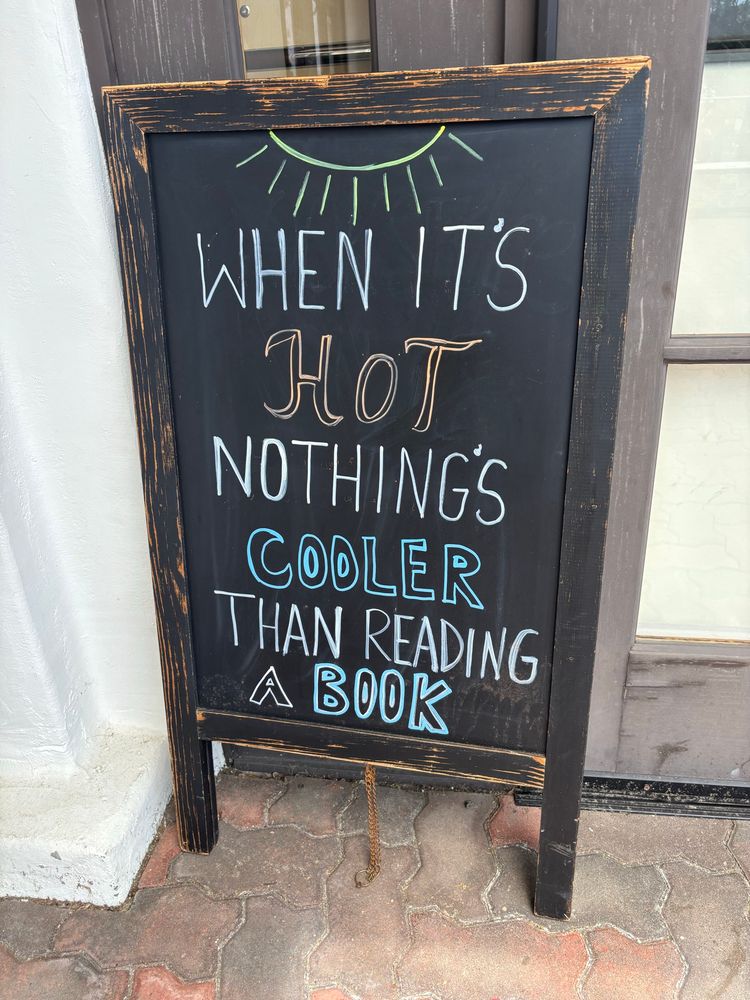 WHEN IT'S
HOT
NOTHING'S
COOLER
THAN READING
A BOOK